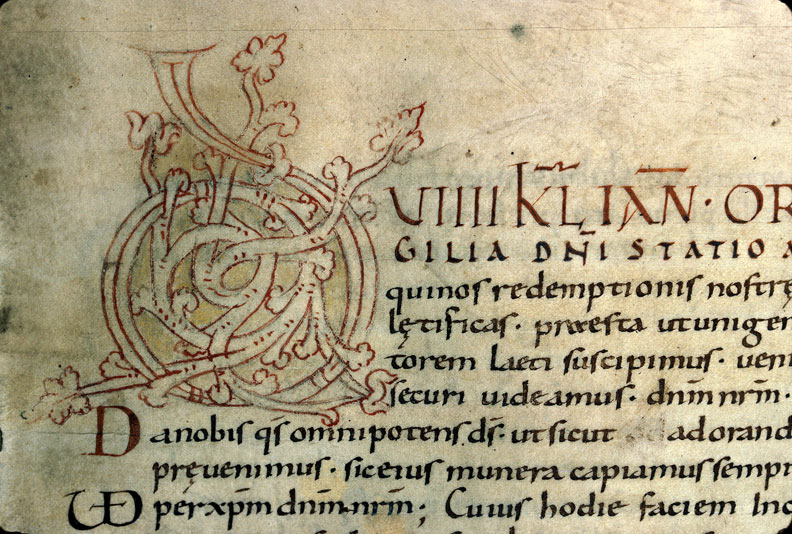 VIIII K̄L IAN̄ · OR
GILIA DN̄I STATIO A
quinos redemptionis nostrę
lętificas · praesta ut unigen
torem laeti suscipimus · veni
securi uideamus · dn̄m nrm̄ ·
Da nobis qs̄ omnipotens ds̄ · ut sicut adorand
pręuenimus · sic eius munera capiamus sempi
VD per xp̄m dn̄m nrm̄ ; Cuius hodie faciem inc